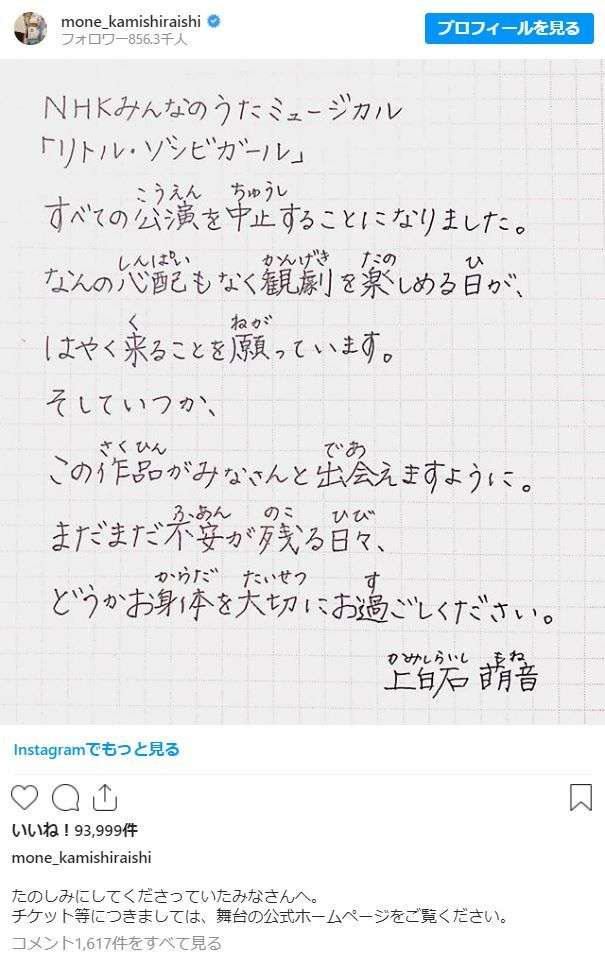 mone_kamishiraishi
フォロワー856.3千人
プロフィールを見る
NHKみんなのうたミュージカル
「リトル・ゾンビガール」
こうえん ちゅうし
すべての公演を中止することになりました。
しんぱい かんげき たの ひ
なんの心配もなく観劇を楽しめる日が、
く ねが
はやく来ることを願っています。
そしていつか、
さくひん であ
この作品がみなさんと出会えますように。
ふあん のこ ひび
まだまだ不安が残る日々、
からだ たいせつ す
どうかお身体を大切にお過ごしください。
かみしらいし もね
上白石 萌音
Instagramでもっと見る
いいね！93,999件
mone_kamishiraishi
たのしみにしてくださっていたみなさんへ。
チケット等につきましては、舞台の公式ホームページをご覧ください。
コメント1,617件をすべて見る